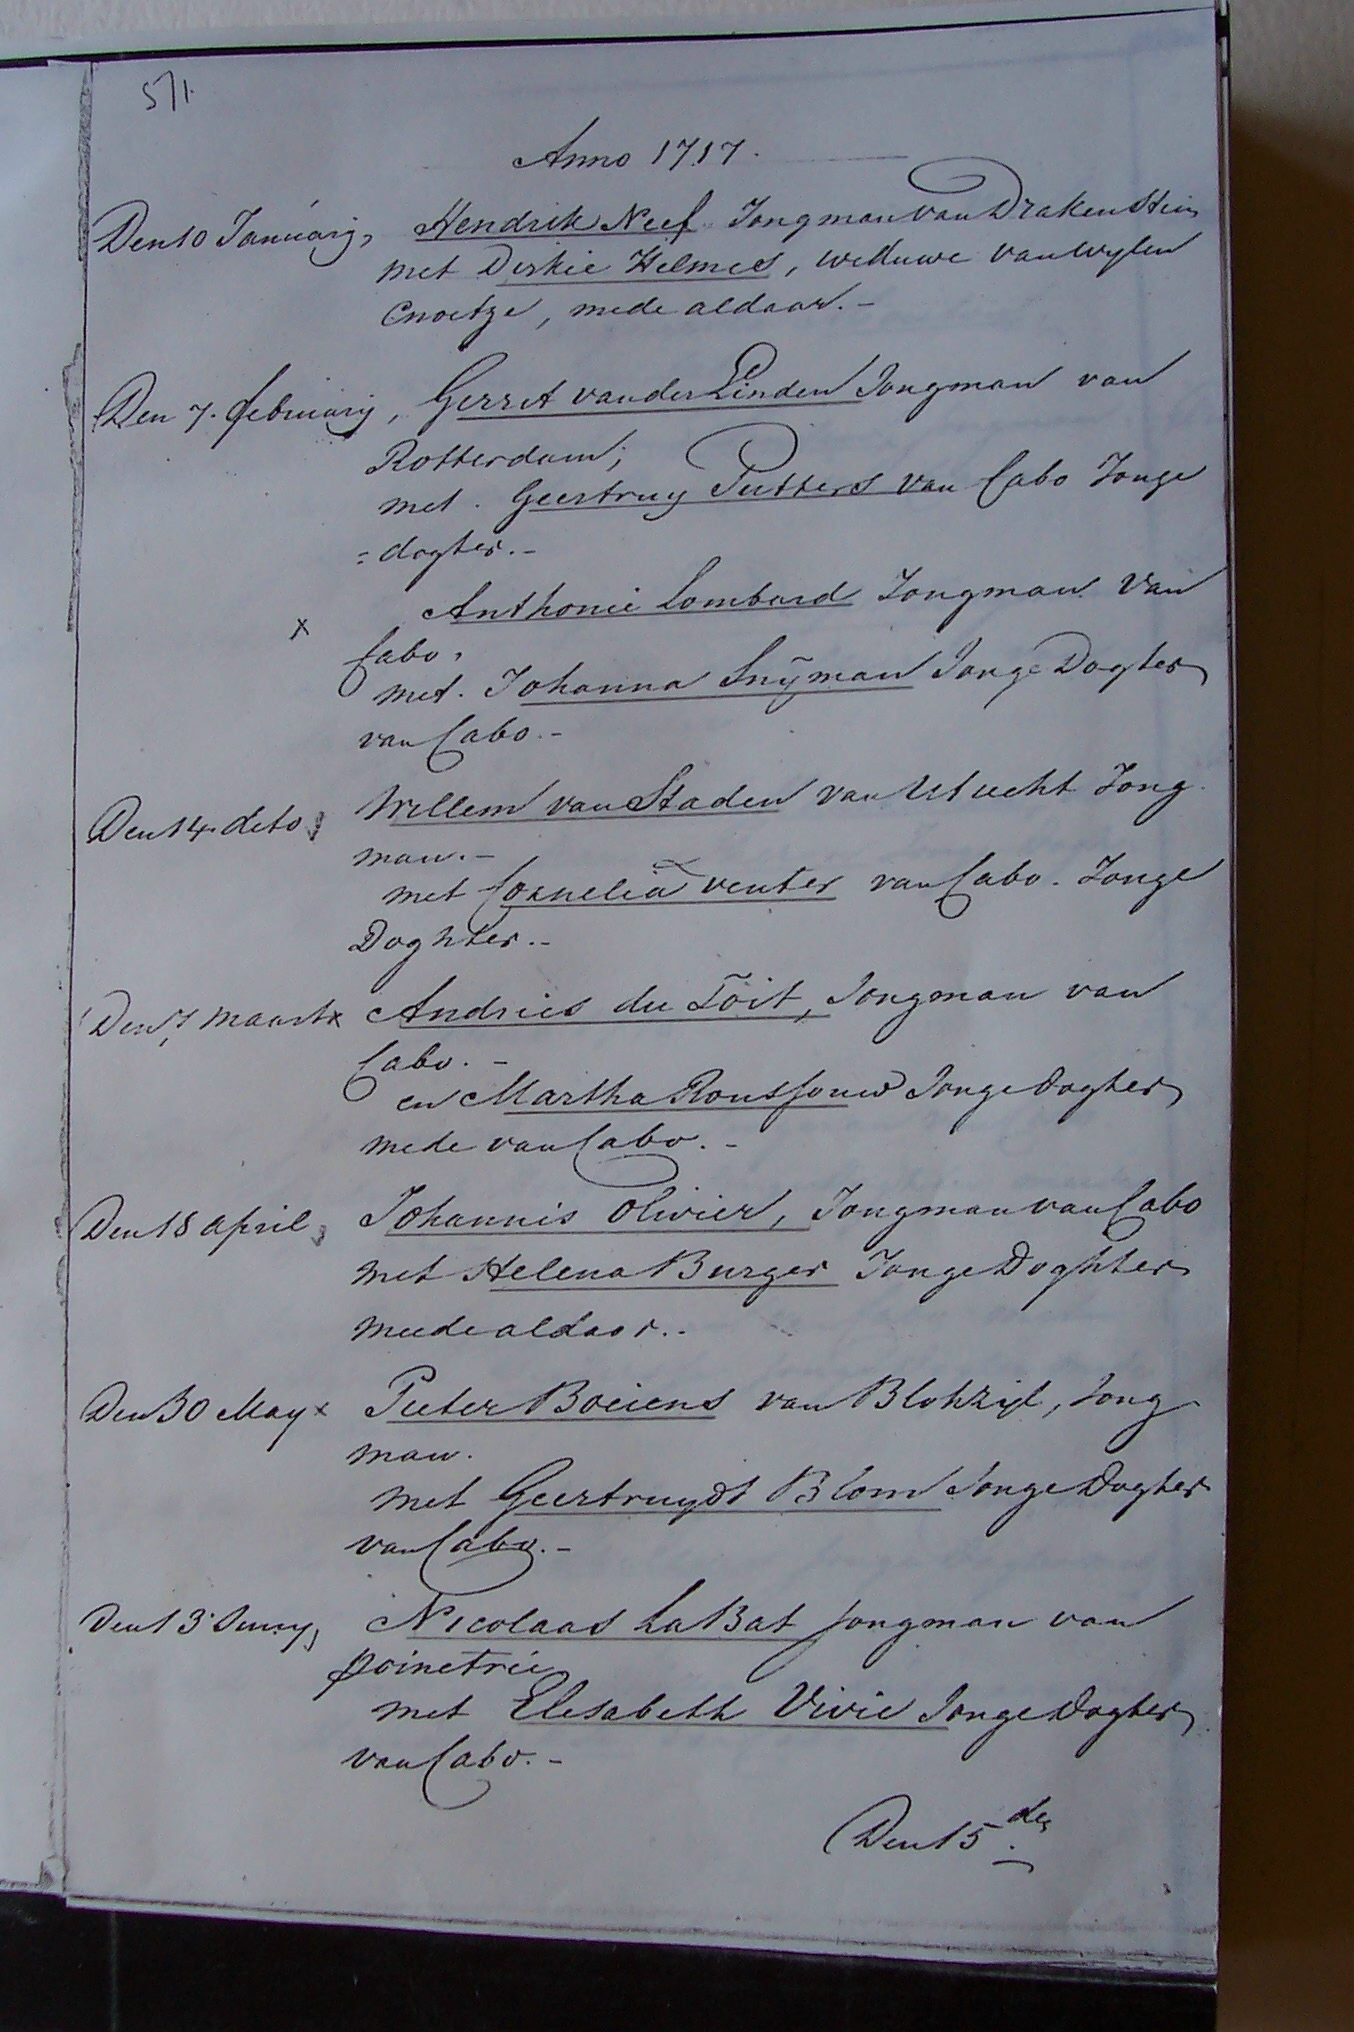 571.
Anno 1717.
Den 10 Januarij, Hendrik Neef Jongman van Drakenstein
met Dirkie Helmes, weduwe van wylen
Cnoetze, mede aldaar.-
Den 7. february, Gerrit van der Linden Jongman van
Rotterdam;
met. Geertruy Putters van Cabo Jonge
=dogter.-
x Anthonie Lombard Jongman Van
Cabo,
met. Johanna Snÿman Jonge Dogter
van Cabo.-
Den 14. dito, Willem van Staden van Utrecht Jong
man.-
met Cornelia venter van Cabo. Jonge
Doghter.-
Den 7 Maart x Andries du Toit, Jongman van
Cabo.-
en Martha Roussouw Jonge dogter
mede van Cabo.-
Den 18 april, Johannis Olivier, Jongman van Cabo
met Helena Burger Jonge Doghter
meede aldaar.-
Den 30 May x Pieter Boeiens van Blokzyl, Jong
man.
met Geertruydt Blom Jonge Dogter
van Cabo.-
Den 13 Juny, Nicolaas LaBat Jongman van
poinctrie
met Elesabeth Vivie Jonge Dogter
van Cabo.-
Den 15 der